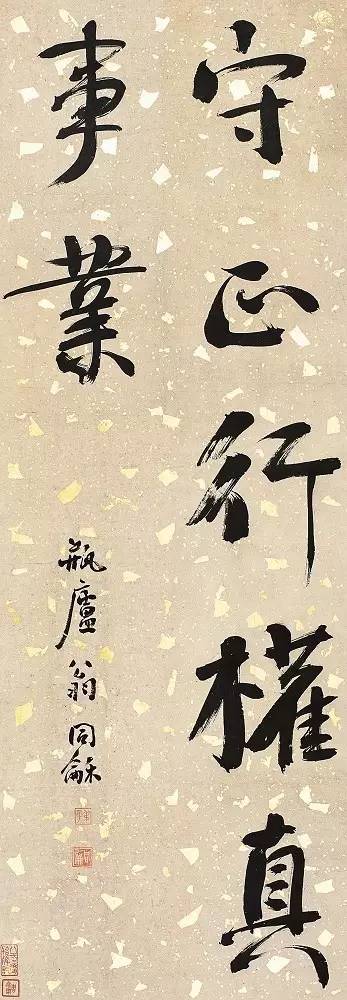 守正行權真
事業
瓶廬翁同龢